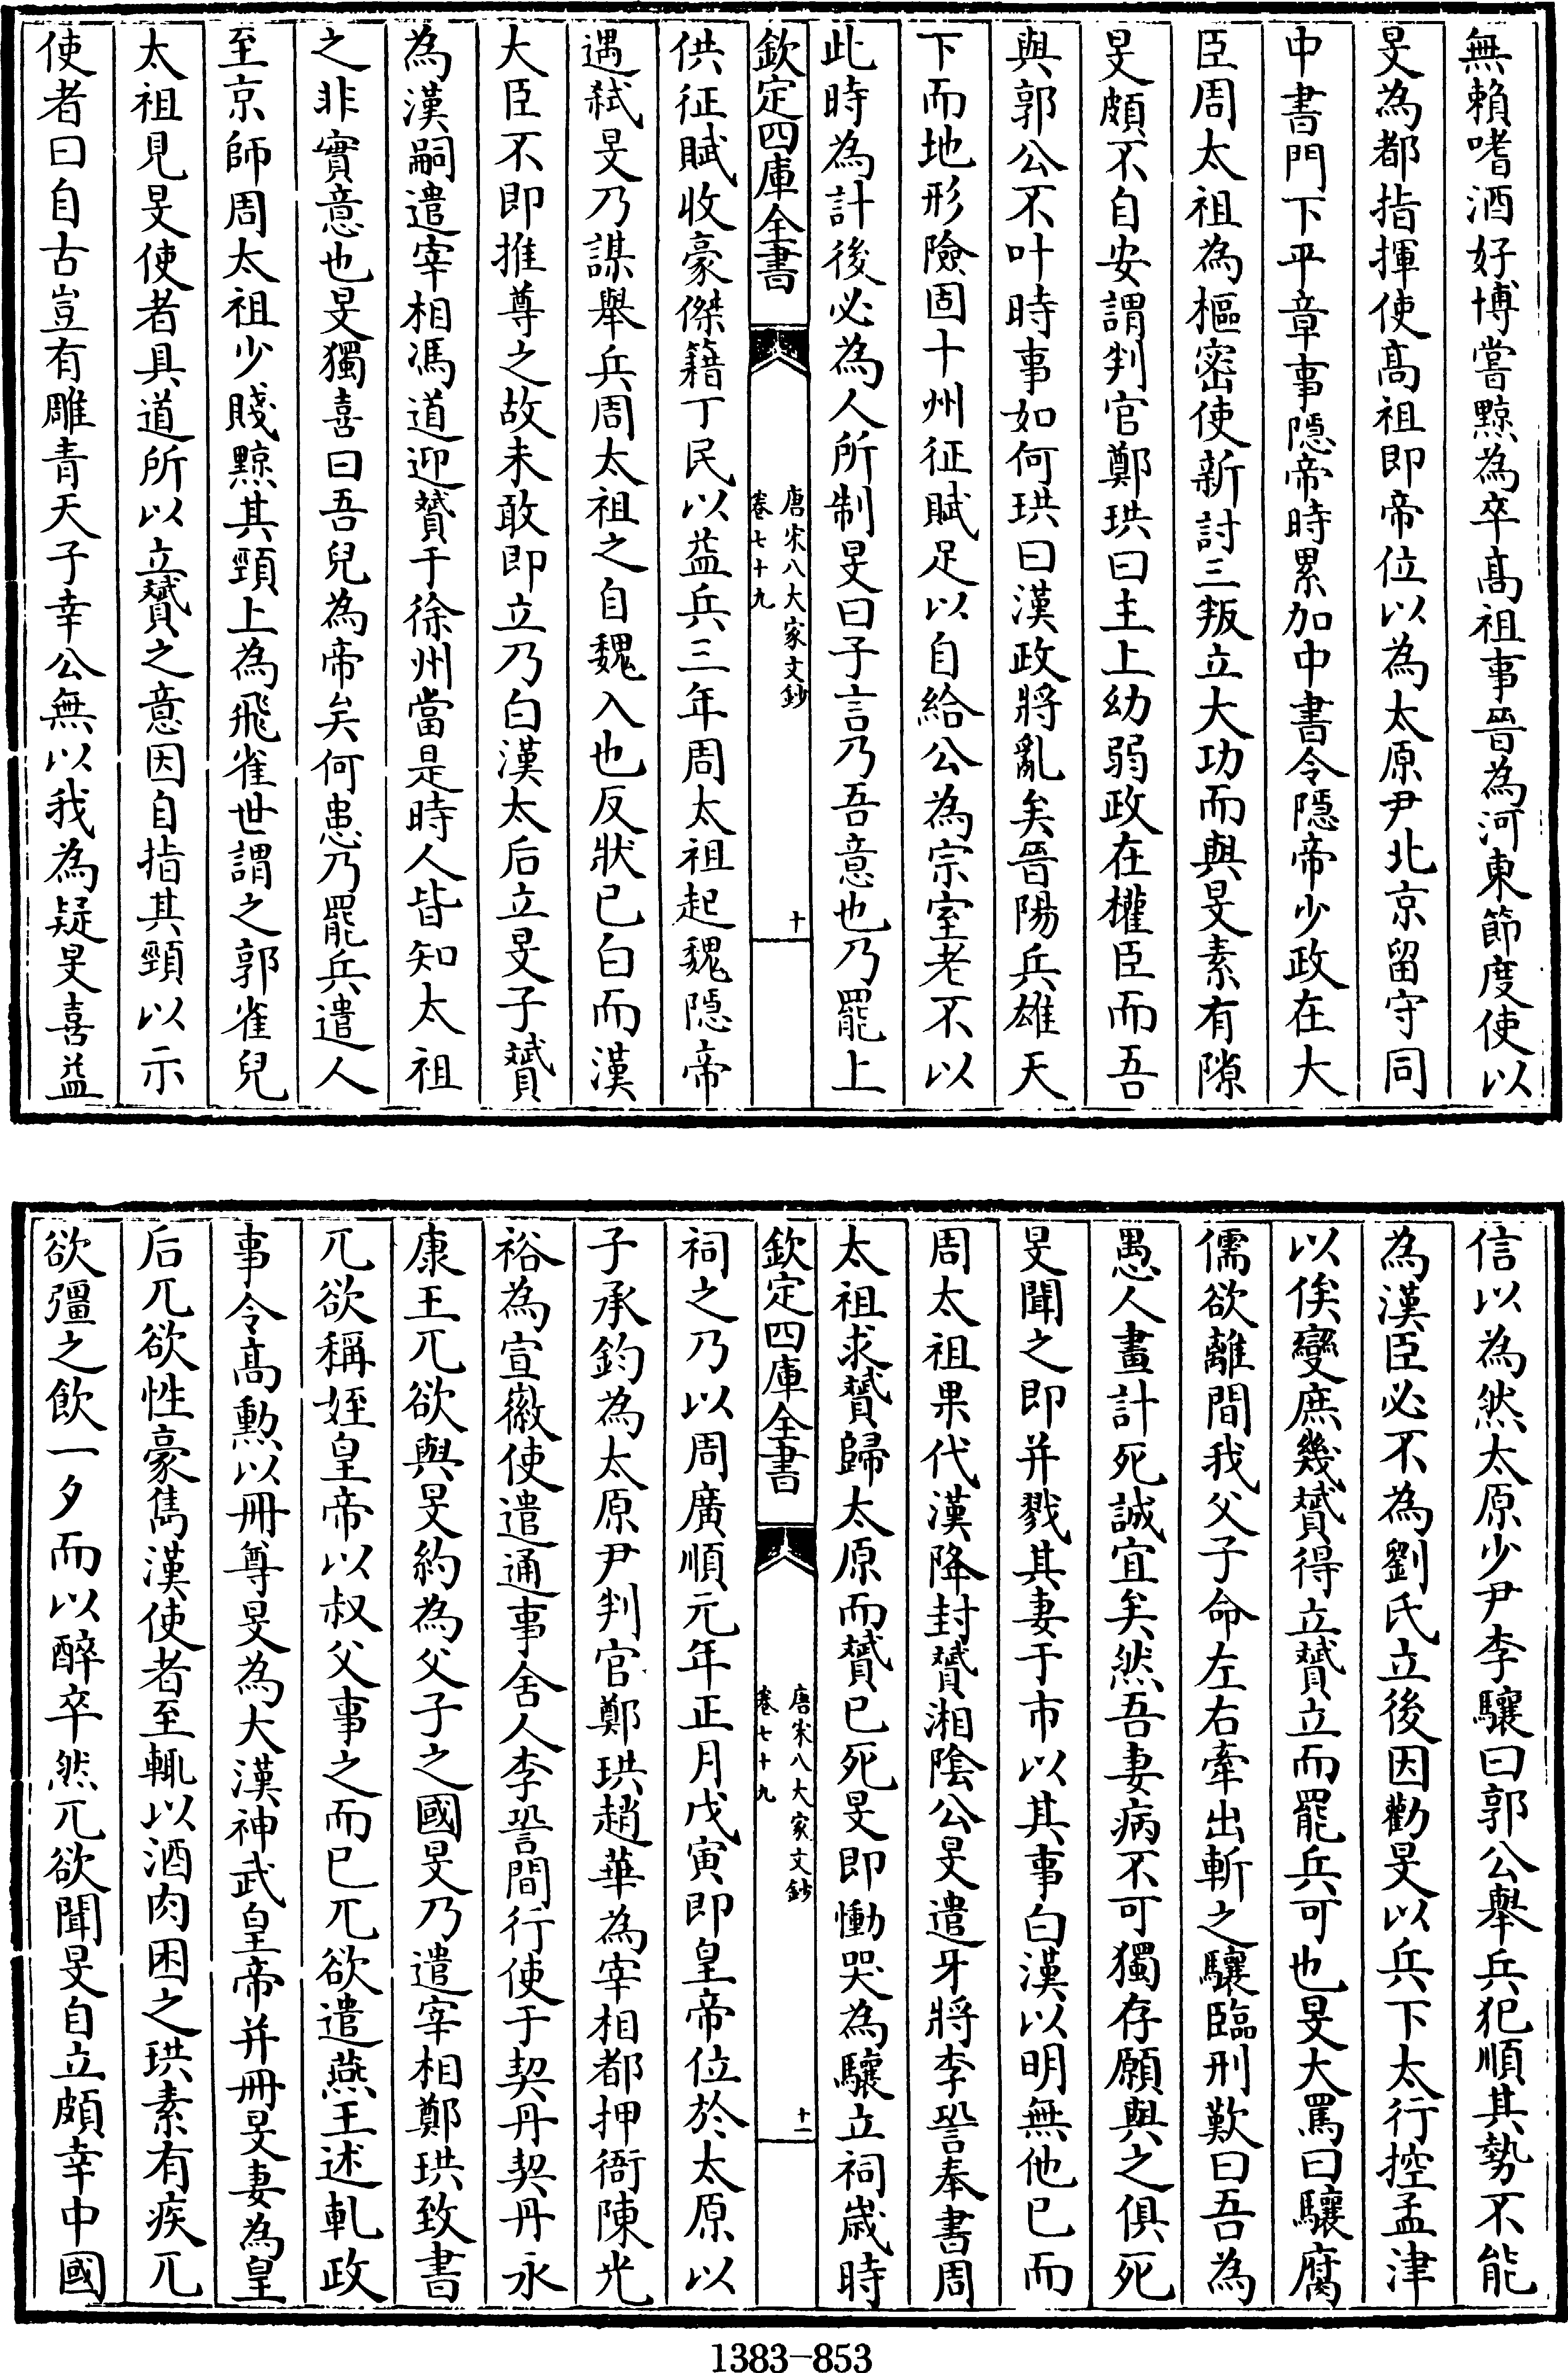 無賴嗜酒好博嘗黥為卒髙祖事晉為河東節度使以
旻為都指揮使髙祖即帝位以為太原尹北京留守同
中書門下平章事隱帝時累加中書令隱帝少政在大
臣周太祖為樞密使新討三叛立大功而與旻素有隙
旻頗不自安謂判官鄭珙曰主上幼弱政在權臣而吾
與郭公不叶時事如何珙曰漢政將亂矣晉陽兵雄天
下而地形險固十州征賦足以自給公為宗室老不以
此時為計後必為人所制旻曰子言乃吾意也乃罷上
欽定四庫全書
唐宋八大家文鈔
卷七十九
十
供征賦收豪傑籍丁民以益兵三年周太祖起魏隱帝
遇弑旻乃謀舉兵周太祖之自魏入也反狀已白而漢
大臣不即推尊之故未敢即立乃白漢太后立旻子贇
為漢嗣遣宰相馮道迎贇于徐州當是時人皆知太祖
之非實意也旻獨喜曰吾兒為帝矣何患乃罷兵遣人
至京師周太祖少賤黥其頸上為飛雀世謂之郭雀兒
太祖見旻使者具道所以立贇之意因自指其頸以示
使者曰自古豈有雕青天子幸公無以我為疑旻喜益
信以為然太原少尹李驤曰郭公舉兵犯順其勢不能
為漢臣必不為劉氏立後因勸旻以兵下太行控孟津
以俟變庶幾贇得立贇立而罷兵可也旻大罵曰驤腐
儒欲離間我父子命左右牽出斬之驤臨刑歎曰吾為
愚人畫計死誠宜矣然吾妻病不可獨存願與之俱死
旻聞之即并戮其妻于市以其事白漢以明無他已而
周太祖果代漢降封贇湘陰公旻遣牙將李𧦬奉書周
太祖求贇歸太原而贇已死旻即慟哭為驤立祠歲時
欽定四庫全書
唐宋八大家文鈔
卷七十九
十一
祠之乃以周廣順元年正月戊寅即皇帝位於太原以
子承鈞為太原尹判官鄭珙趙華為宰相都押衙陳光
裕為宣徽使遣通事舍人李𧦬間行使于契丹契丹永
康王兀欲與旻約為父子之國旻乃遣宰相鄭珙致書
兀欲稱姪皇帝以叔父事之而已兀欲遣燕王述軋政
事令髙勲以冊尊旻為大漢神武皇帝并冊旻妻為皇
后兀欲性豪雋漢使者至輒以酒肉困之珙素有疾兀
欲彊之飲一夕而以醉卒然兀欲聞旻自立頗幸中國
1383-853